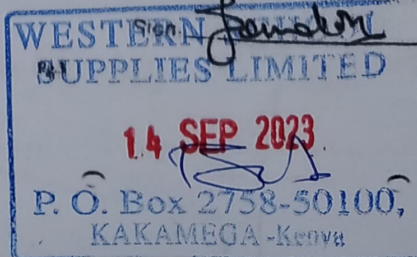 WESTERN
Sign:
SUPPLIES LIMITED
14 SEP 2023
P. O. Box 2758-50100,
KAKAMEGA -Kenya